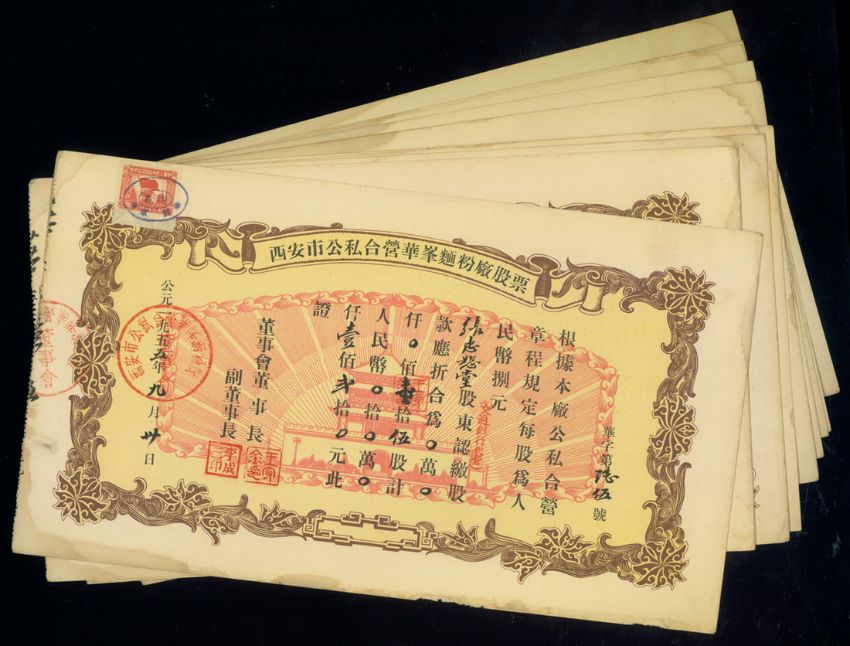 西安市公私合營華峯麵粉廠股票
華字第陸伍號
根據本廠公私合營
章程規定每股爲人
民幣捌元
張志堂股東認繳股
款應折合爲0萬0
仟0佰壹拾伍股計
人民幣0拾0萬0
仟壹佰弍拾0元此
證
董事會董事長
副董事長
公元一九五五年九月卅日
西安市公私合營
董事會